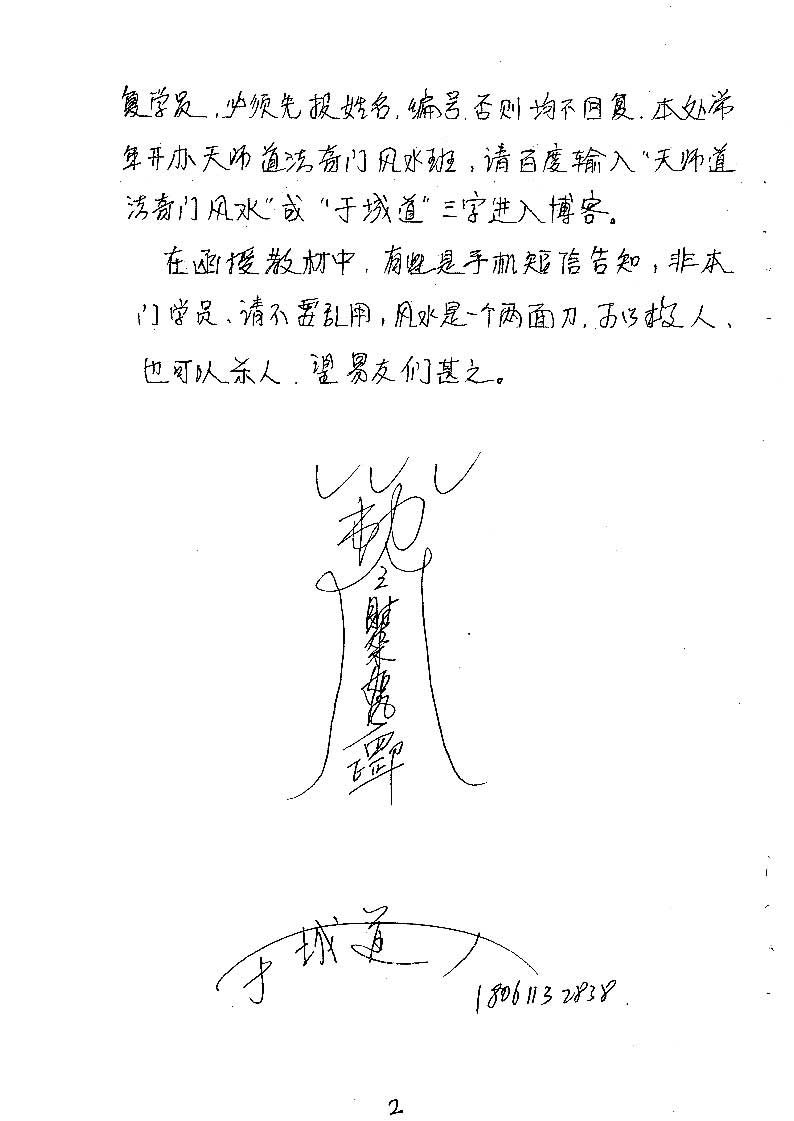 复学员,必须先报姓名.编号.否则均不回复.本处常
年开办天师道法奇门风水班,请百度输入“天师道
法奇门风水”或“于城道”三字进入博客。
在函授教材中,有些是手机短信告知,非本
门学员、请不要乱用,风水是一个两面刀.可以救人、
也可以杀人.望易友们甚之。
勅
于城道人
18061132838.
2